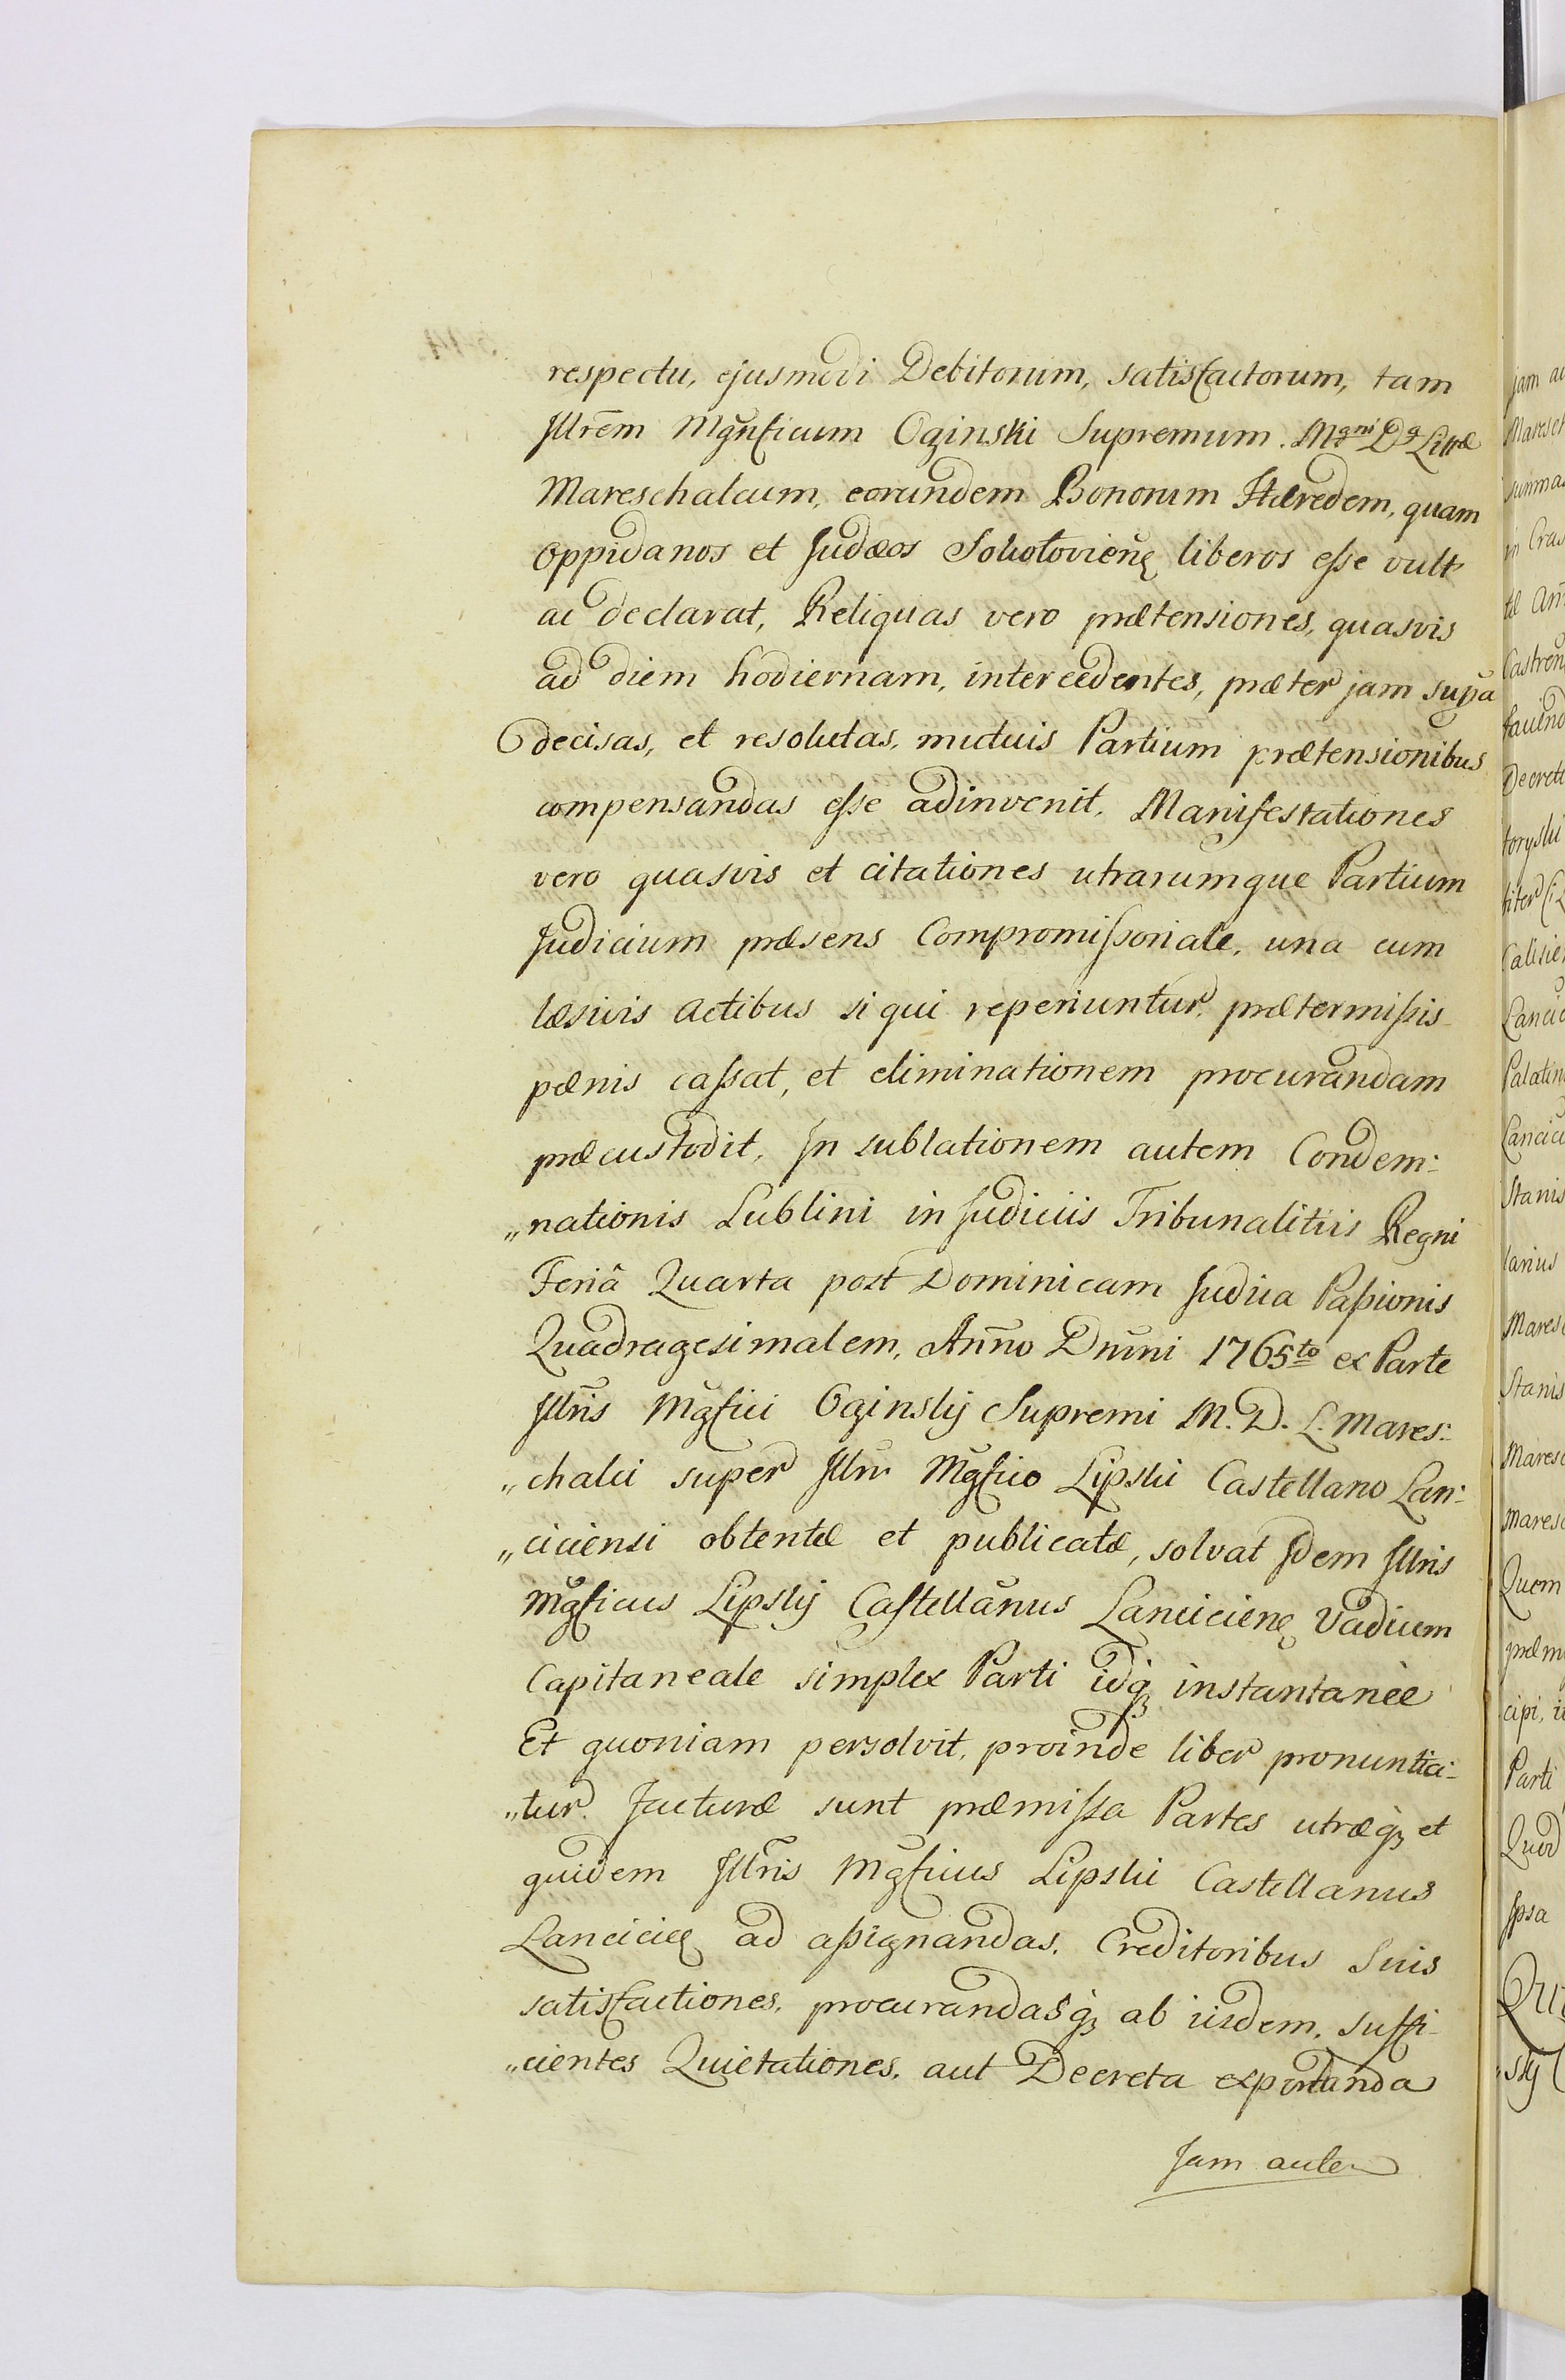 respectu, ejusmodi Debitorum, satisfactorum, tam
Jllrem Mgnficum Oginski Supremum Mgni Da Littæ
Mareschalcum, eorundem Bonorum Hæredem, quam
Oppidanos et Judæos Sokołoviens liberos eſse vult
ac declarat, Reliquas vero prætensiones, quasvis
ad diem hodiernam, intercedentes, præter jam supra
decisas, et resolutas, mutuis Partium prætensionibus
compensandas eſse adinvenit, Manifestationes
vero quasvis et citationes utrarumque Partium
Judicium præsens Compromiſsoriale, una cum
læsivis Actibus si qui reperiuntur, prætermiſsis
pænis caſsat, et eliminationem procurandam
præcustodit, Jn sublationem autem Condem:
„nationis Lublini in Judiciis Tribunalitiis Regni
Feriâ Quarta post Dominicam Judica Paſsionis
Quadragesimalem, Anno Dnni 1765to ex Parte
Jllris Mgfici Oginskij Supremi M. D. L. Mares:
„chalci super Jllri Mgfico Lipski Castellano Lan:
„ciciensi obtentæ et publicatæ, solvat Jdem Jllris
Mgficus Lipskij Caſtellanus Lanciciens Vadium
Capitaneale simplex Parti idq instantanèe
Et quoniam persolvit, proinde liber pronuntia:
„tur. Facturæ sunt præmiſsa Partes utræq et
quidem Jllris Mgficus Lipski Castellanus
Lancicien ad aſsignandas, Creditoribus Suis
satisfactiones, procurandasq ab iisdem, suffi:
„cientes Quietationes, aut Decreta exportanda
Jam autem